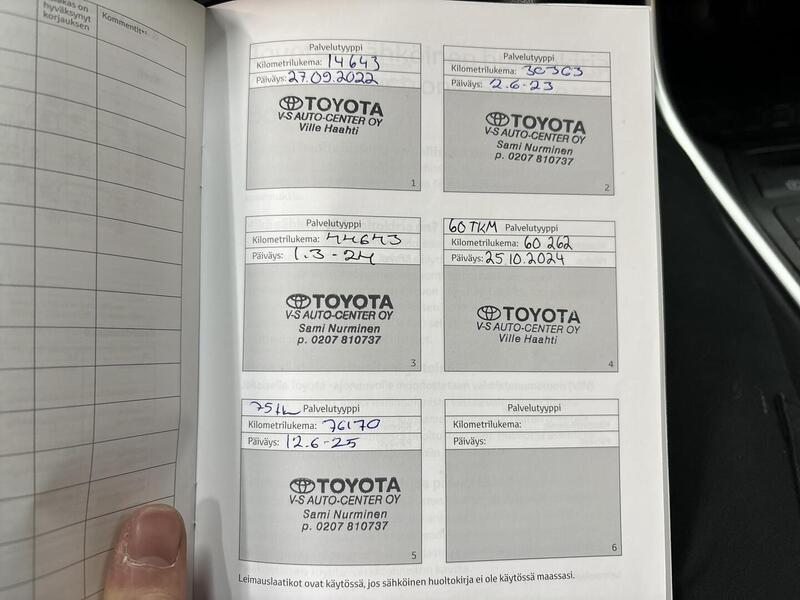 kas on
hyväksynyt
korjauksen
Kommentit*¹
Palvelutyyppi
Kilometrilukema: 14643
Päiväys: 27.09.2022
TOYOTA
V-S AUTO-CENTER OY
Ville Haahti
1
Palvelutyyppi
Kilometrilukema: 30363
Päiväys: 2.6-23
TOYOTA
V-S AUTO-CENTER OY
Sami Nurminen
p. 0207 810737
2
Palvelutyyppi
Kilometrilukema: 44643
Päiväys: 1.3-24
TOYOTA
V-S AUTO-CENTER OY
Sami Nurminen
p. 0207 810737
3
60 TKM Palvelutyyppi
Kilometrilukema: 60 262
Päiväys: 25 10.2024
TOYOTA
V-S AUTO-CENTER OY
Ville Haahti
4
Palvelutyyppi
Kilometrilukema: 76170
Päiväys: 12.6-25
TOYOTA
V-S AUTO-CENTER OY
Sami Nurminen
p. 0207 810737
5
Palvelutyyppi
Kilometrilukema:
Päiväys:
6
Leimauslaatikot ovat käytössä, jos sähköinen huoltokirja ei ole käytössä maassasi.